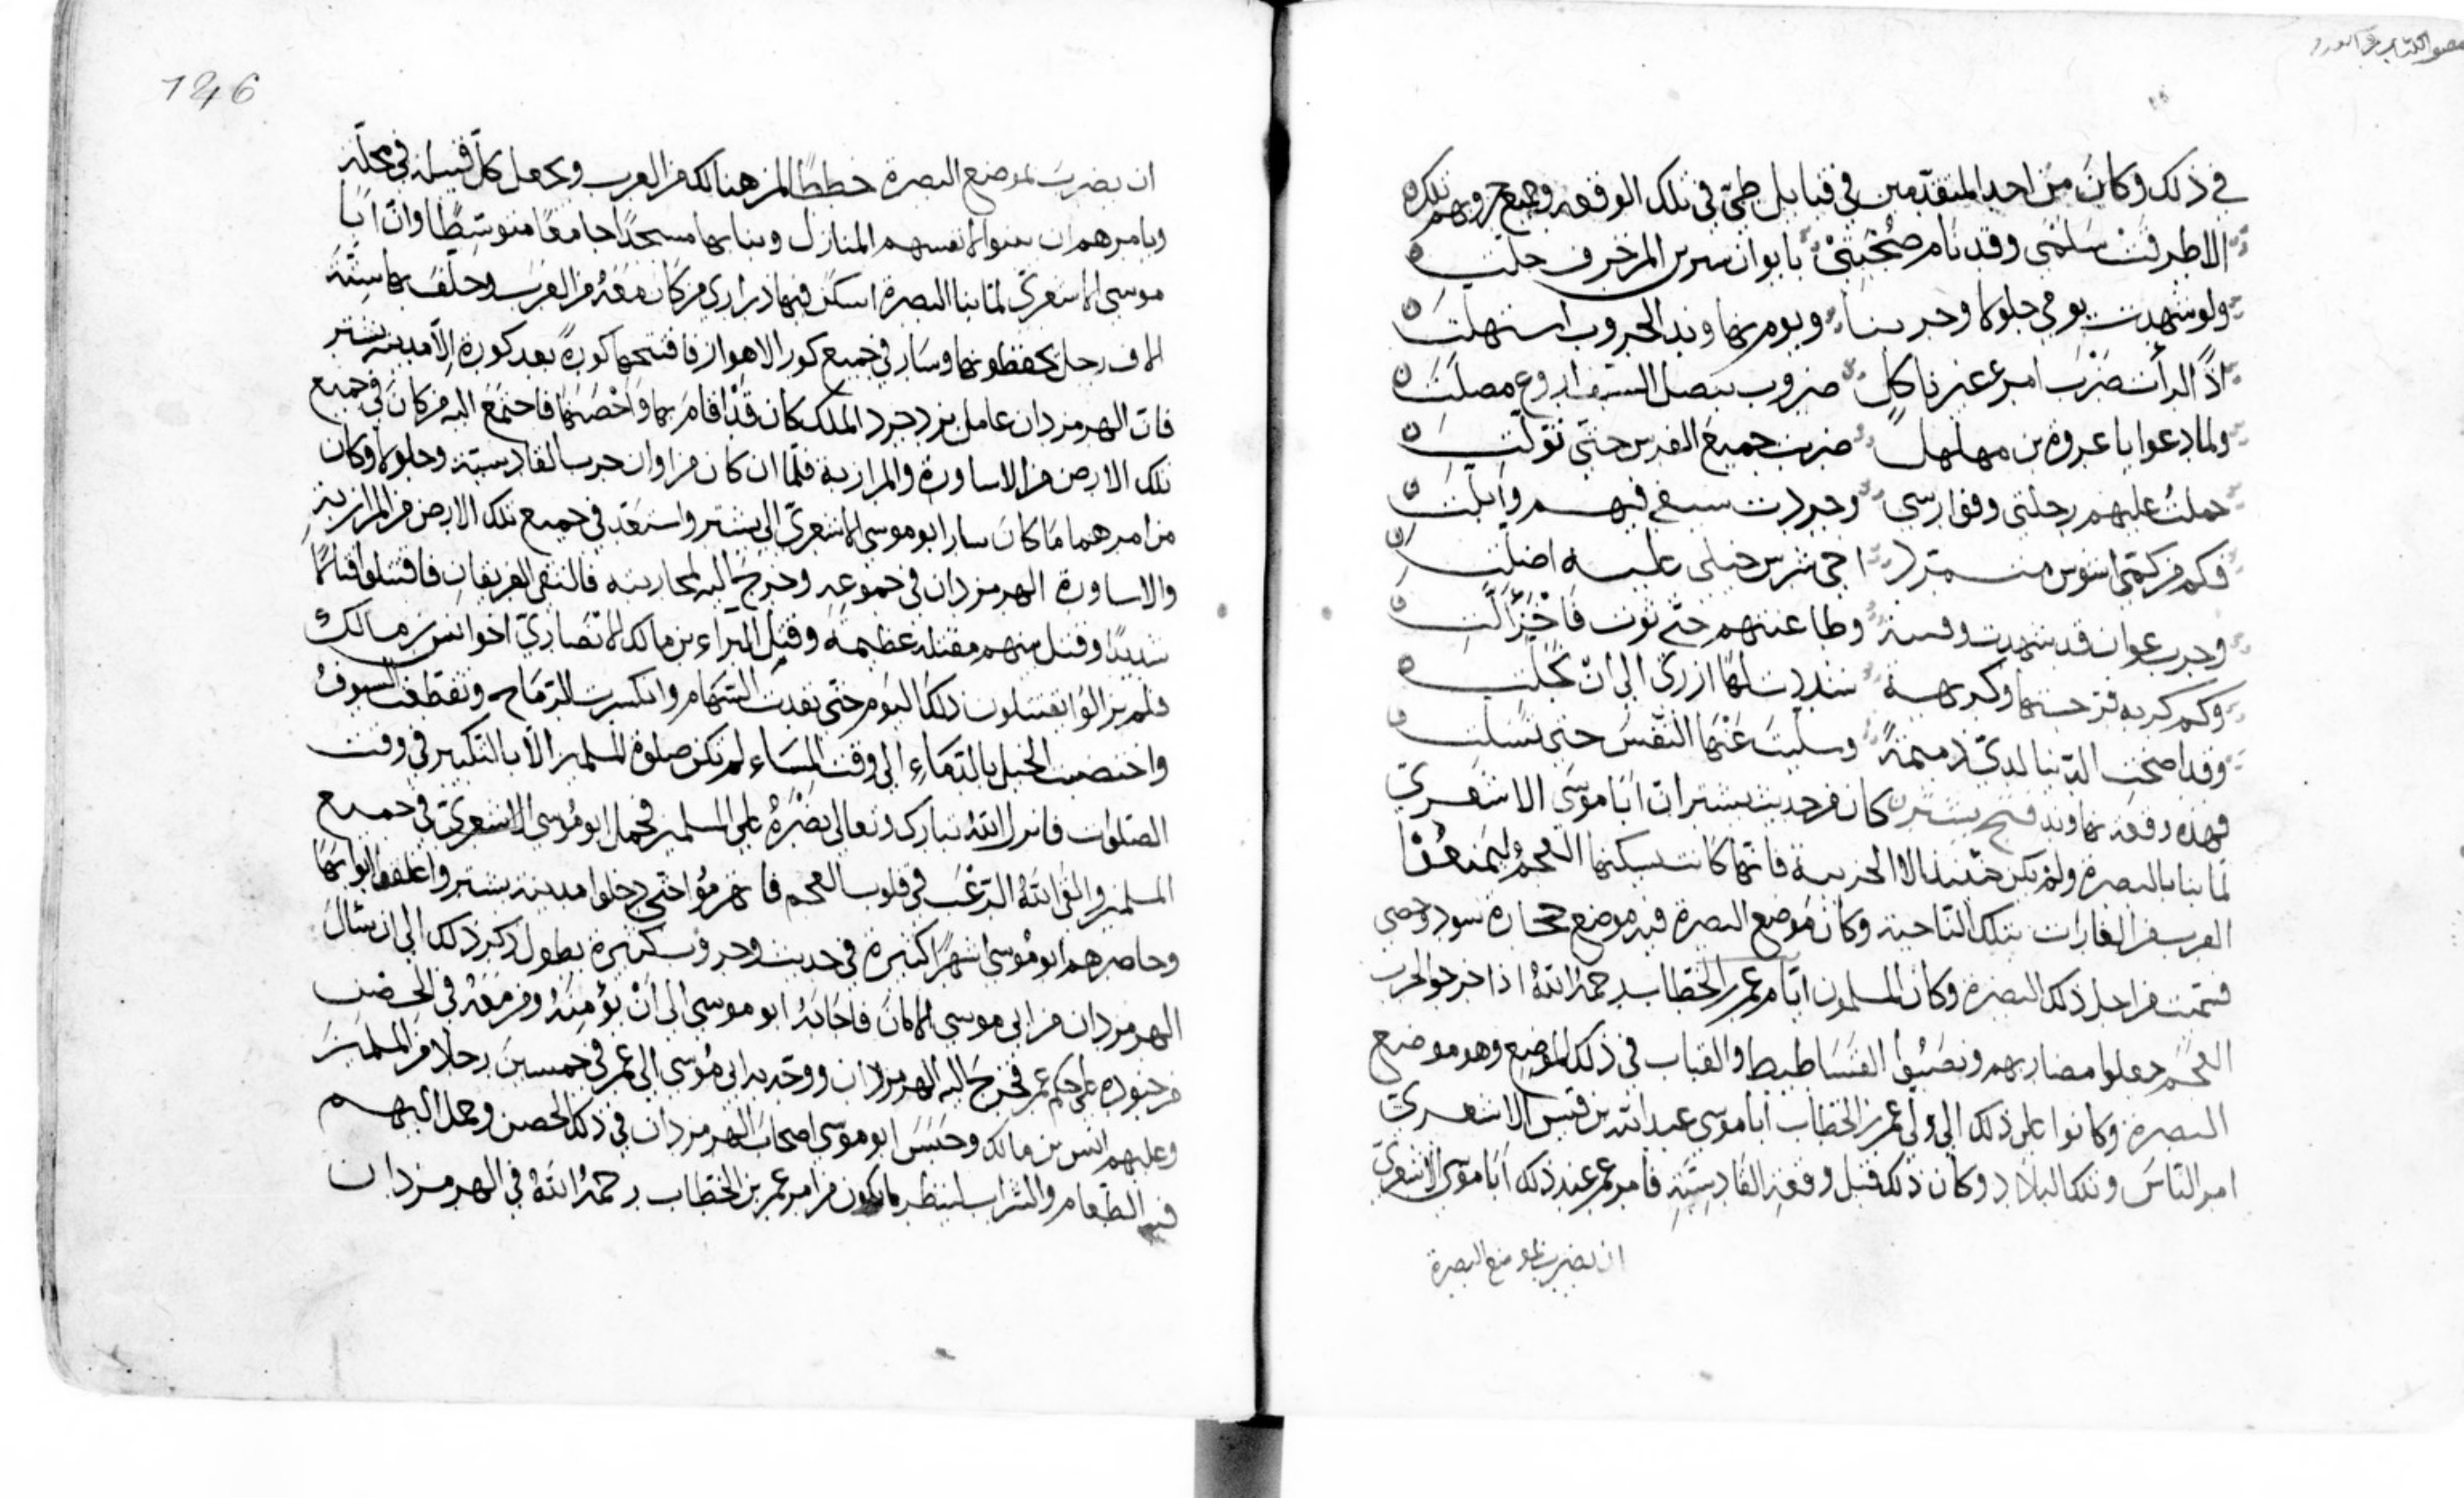 في ذلك وكان من احد المتقدمين في قبايل طي في تلك الوقعه وجميع حروبهم تلك
الا طرقت سلمى وقد نام صحبتي بايوان سيرين المزخرف حلت
ولو شهدت يومي جلولا وحربنا ويوم نهاوند الحروب استهلت
اذا لرأت ضرب امرء غير ناكل ضروب بنصل السيف اروع مصلت
ولما دعوا يا عروة بن مهلهل ضربت جميع الفرس حتى تولت
حملت عليهم رجلتي وفوارسي وجردت سيفي فيهم وابلت
فكم من كمي اشوس متمرد خيلي عليه اضلت
وحرب عوان قد شهدت وطاعنتهم حتى فاخزالت
وكم كربة فرجتها وكريهة شددت لها ازري الى ان تجلت
وقد اضحت الدنيا لدي ذميمة وسليت عنها النفس حتى تسلت
فهذه وقعة نهاوند فتح تستر كان من حديث تستر ان ابا موسى الاشعري
لما بنا بالبصرة ولم يكن حينئذ الا الخريبة فانها كانت تسكنها العجم ليمنعوا
العرب من الغارات بتلك الناحية وكان موضع البصرة فيه موضع حجارة سود وحصى
فسميت من اجل ذلك البصرة وكان المسلمون ايام عمر بن الخطاب رحمه الله اذا خرجوا لحرب
العجم جعلوا مضاربهم ونصبوا الفساطيط والقباب في ذلك الموضع وهو موضع
البصرة وكانوا على ذلك الى ولى عمر بن الخطاب ابا موسى عبد الله بن قيس الاشعري
امر الناس وتلك البلاد وكان ذلك قبل وقعة القادسية فامر عمر عند ذلك ابا موسى الاشعري
ان يضرب بموضع البصرة
1246
ان يضرب بموضع البصرة خططا لمن هنالك من العرب ويجعل كل قبيلة في محلة
ويامرهم ان يبنوا لانفسهم المنازل وبنا بها مسجدا جامعا متوسطا وان ابا
موسى الاشعري لما بنا البصرة اسكن فيها ذراري من كان معه من العرب وخلف بها ستة
الاف رجل يحفظونها وسار في جميع كور الاهواز فافتتحها كورة بعد كورة الا مدينة تستر
فان الهرمزدان عامل يزدجرد الملك كان قد اقام بها واحصنها فاجتمع اليه من كان في جميع
تلك الارض من الاساورة والمرازبة فلما ان كان من اوان حرب القادسية وجلولا وكان
من امرهما ما كان سار ابو موسى الاشعري الى تستر واستمد في جميع تلك الارض من المرازبة
والاساورة الهرمزدان في جموعه وخرج اليه لمحاربته فالتقى الفريقان فاقتتلوا قتالا
شديدا وقتل منهم مقتلة عظيمة وقتل البراء بن مالك الانصاري اخو انس بن مالك
فلم يزالوا يقتتلون ذلك اليوم حتى نفدت السهام وانكسرت الرماح وتقطعت السيوف
واختضبت الخيل بالدماء الى وقت المساء لم تكن صلوة للمسلمين الا بالتكبير في وقت
الصلوات فانزل الله تبارك وتعالى نصره على المسلمين فحمل ابو موسى الاشعري في جميع
المسلمين والقى الله الرعب في قلوب العجم فانهزموا حتى دخلوا مدينة تستر واغلقوا ابوابها
وحاصرهم ابو موسى اشهرا كثيرة في حديث وحروب كثيرة يطول ذكر ذلك الى ان سال
الهرمزدان من ابي موسى الامان فاجابه ابو موسى الى ان يؤمنه ومن معه في الحصن
من جنوده على حكم عمر فخرج اليه الهرمزدان ووجه به ابي موسى الى عمر في خمسين رجلا من المسلمين
وعليهم انس بن مالك وحبس ابو موسى اصحاب الهرمزدان في ذلك الحصن وحمل اليهم
فيه الطعام والشراب لينظر ما يكون من امر عمر بن الخطاب رحمه الله في الهرمزدان